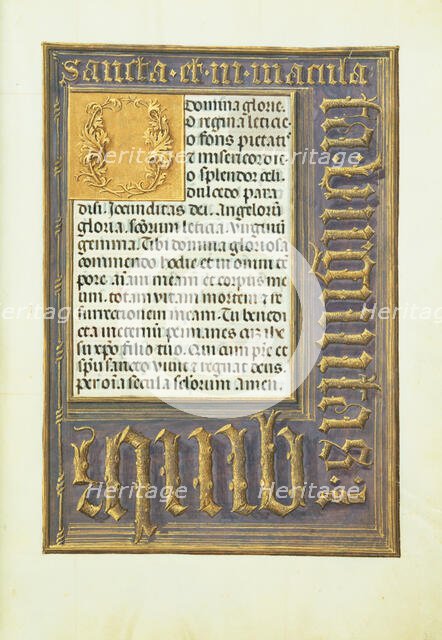 Sancta · et · in · macula
ta · virginitas ·
quib
O
Domina glorie.
O regina leticie
o fons pietatis
et misericordie
o splendor celi.
dulcedo para
disi. Jocunditas dei. Angeloru͂
gloria. sc̃orum leticia. virginu͂
gemma. Tibi domina gloriosa
commendo hodie et in omni te͂
pore. a͂i͂am meam et corpus me
um. totam vitam mortem et re
surrectionem meam. Tu benedi
cta
su xp̃o filio tuo. Qui cum pr̃e et
sp̃u sancto vivit et regnat deus.
Per o͂i͂a secula sc̃lorum amen.
Heritage
Heritage
Heritage
Heritage
Heritage
Heritage
Heritage
Heritage
Heritage